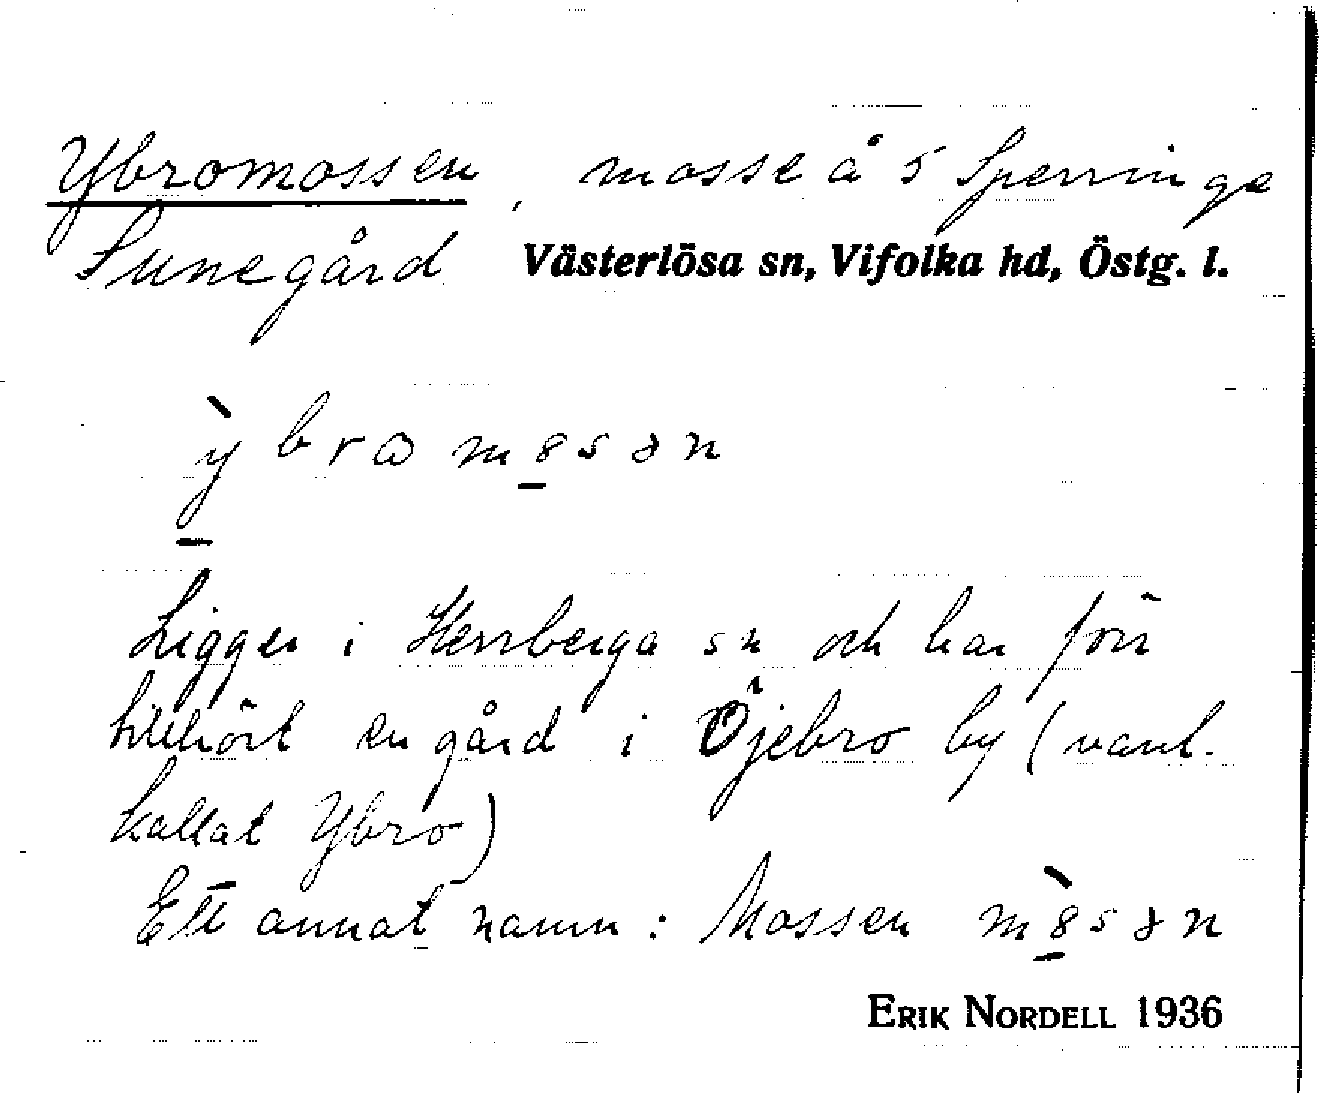 Ybromossen, mosse å 5 Sperringe
Sunegård Västerlösa sn, Vifolka hd, Östg. l.
ỳ̠brωm8̠sən
Ligger i Herrberga sn och har förr
tillhört en gård i Öjebro by (vanl.
kallat Ybro)
Ett annat namn: Mossen m8̠̀sən
ERIK NORDELL 1936